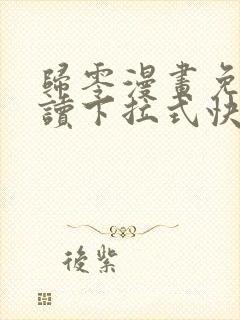 歸零漫畫免
讀下拉式快
後紫